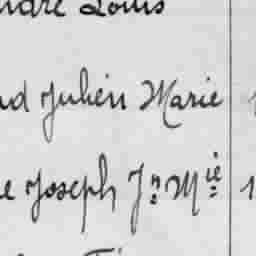 ndré Louis
nd Julien Marie
e Joseph Jn Mie 1